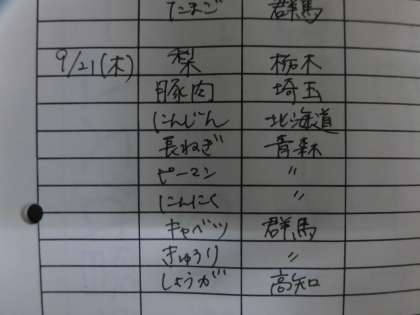 たまご 群馬
9/21(木) 梨 栃木
豚肉 埼玉
にんじん 北海道
長ねぎ 青森
ピーマン 〃
にんにく 〃
キャベツ 群馬
きゅうり 〃
しょうが 高知